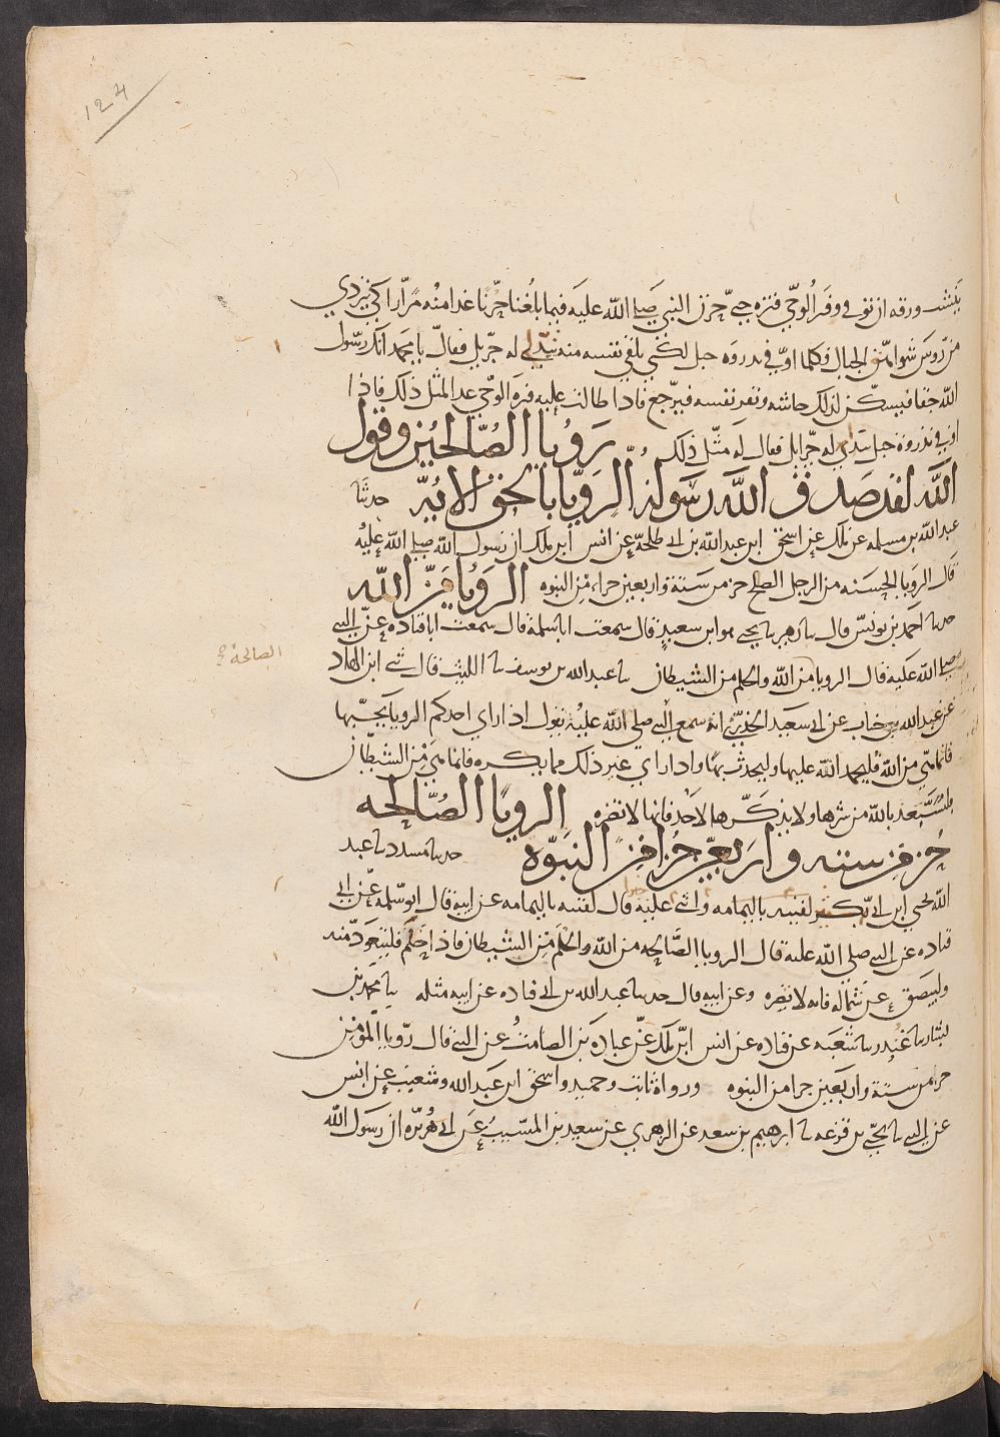 124
ينشب ورقه ان توفي وفتر الوحي فتره حتي حزن النبي صلي الله عليه فيما بلغنا حزنا غدا منه مرارا كي يتردي
من روس شواهق الجبال فكلما اوفي بذروه جبل لكي يلقي نفسه منه تبدي له جبريل فقال يا محمد انك رسول
الله حقا فيسكن لذلك جاشه وتقر نفسه فيرجع فاذا طالت عليه فتره الوحي غدا لمثل ذلك فاذا
اوفي بذروة جبل تبدي له جبرايل فقال له مثل ذلك رويا الصالحين وقول
الله لقد صدق الله رسوله الرويا بالحق الايه حدثنا
عبد الله بن مسلمه عن ملك عن اسحق ابن عبد الله بن ابي طلحة عن انس ابن ملك ان رسول الله صلي الله عليه
قال الرويا الحسنه من الرجل الصلح جز من ستة واربعين جزاء من النبوه الرويا من الله
حدثنا احمد بن يونس قال نا زهير نا يحيي هو ابن سعيد قال سمعت ابا سلمة قال سمعت ابا قتاده عن النبي
صلي الله عليه قال الرويا من الله والحلم من الشيطان نا عبد الله بن يوسف نا الليث قال ثني ابن الهاد
الصالحة صح
عن عبد الله بن خباب عن ابي سعيد الخدري انه سمع النبي صلي الله عليه يقول اذا راي احدكم الرويا يحبها
فانما هي من الله فليحمد الله عليها وليحدث بها واذا راي غير ذلك مما يكره فانما هي من الشيطان
فليستعذ بالله من شرها ولا يذكرها لاحد فانها لا تضره الرويا الصالحه
جز من سته واربعين جزا من النبوه حدثنا مسدد نا عبد
الله بن يحيي ابن ابي كثير لقيته باليمامه واثني عليه خيرا قال لقيته باليمامه عن ابيه قال ابو سلمه عن ابي
قتاده عن النبي صلي الله عليه قال الرويا الصالحه من الله والحلم من الشيطان فاذا احتلم فليتعوذ منه
وليبصق عن شماله فانه لا تضره وعن ابيه قال حدثنا عبد الله بن ابي قتاده عن ابيه مثله نا محمد بن
بشار نا غندر نا شعبه عن قتاده عن انس ابن ملك عن عباده بن الصامت عن النبي قال رويا المؤمن
جزا من ستة واربعين جزا من النبوه ورواه ثابت وحميد واسحق ابن عبد الله وشعيب عن انس
عن النبي نا يحيي بن قزعه نا ابرهيم بن سعد عن الزهري عن سعيد بن المسيب عن ابي هريره ان رسول الله